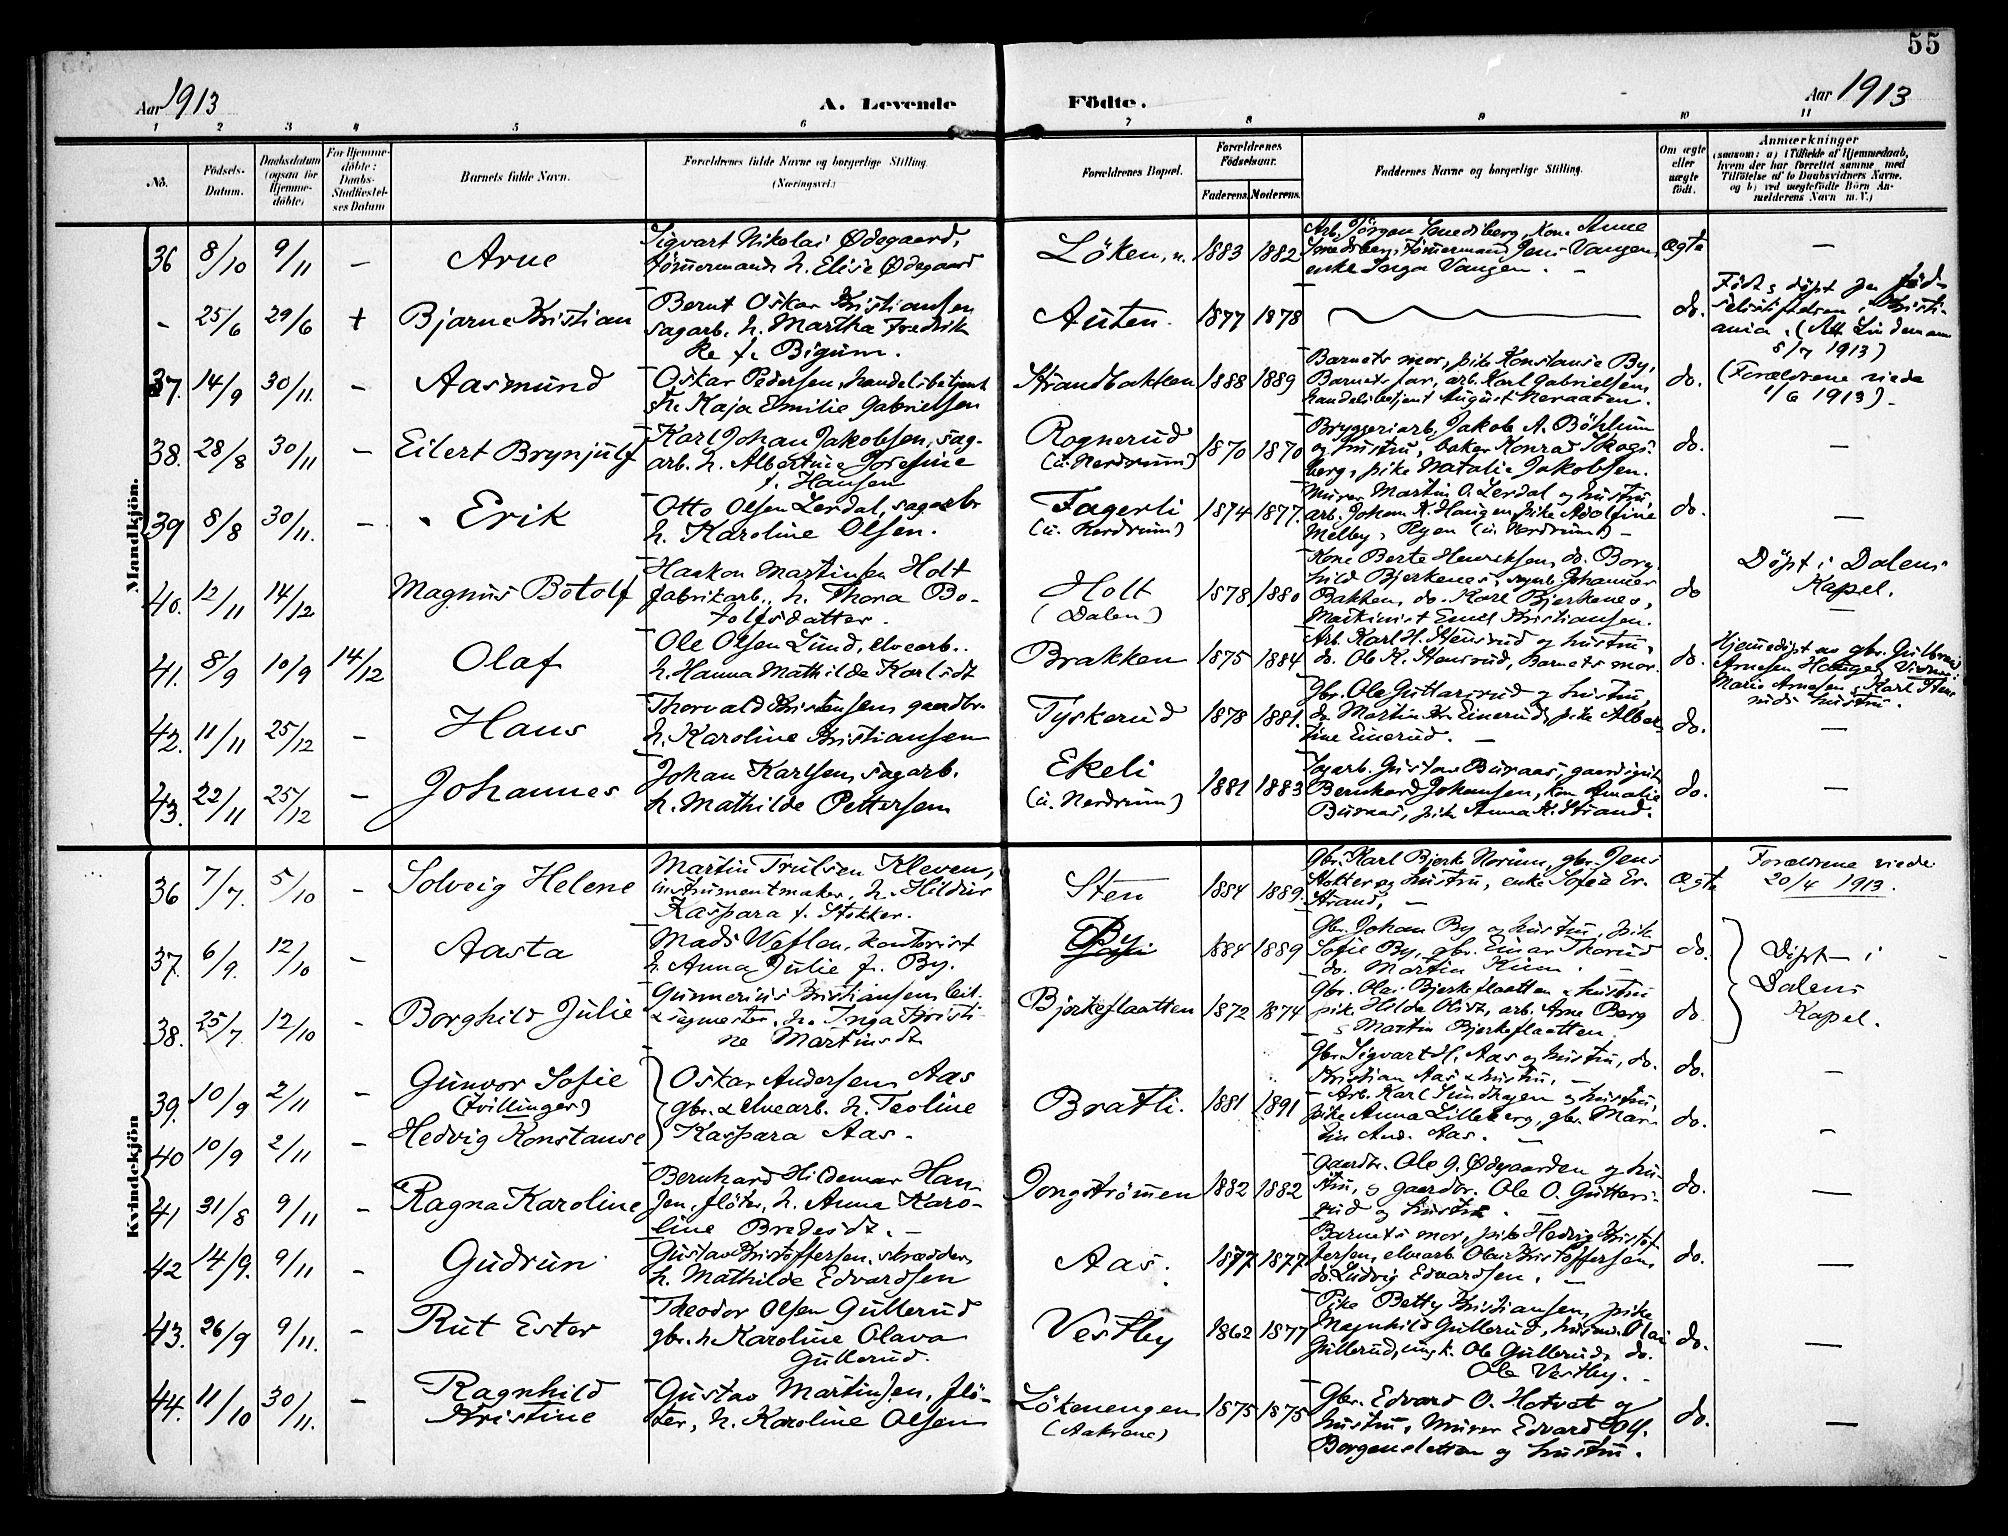 55
Aar 1913
A. Levende
Födte.
Aar 1913
1 2 3 4 5 6 7 8 9 10 11
No.
Födsels-Datum.
Daabsdatum (ogsaa for Hjemme-döbte)
For Hjemme-döbte: Daabs-Stadfæstel-ses Datum
Barnets fulde Navn.
Forældrenes fulde Navne og borgerlige Stilling. (Næringsvei.)
Forældrenes Bopæl.
Forældrenes Födselsaar.
Faderens. Moderens.
Faddernes Navne og borgerlige Stilling.
Om ægte eller uægte födt.
Anmærkninger
(saasom: a) i Tilfælde af Hjemmedaab, hvem der har forrettet samme, med Tilföielse af to Daabsvidners Navne, og b) ved uægtefödte Börn An-melderens Navn m. V.)
Mandkjön.
36 8/10 9/11 – Arne
Sigvart Nikolai Ødegaard,
tömmermand, h. Elise Ødegaard
Löken, n. 1883 1882
Arb. Jörgen Smedsberg, Kone Anne
Smedsberg, Tömmermand Jens Vangen,
enke Inga Vangen. –
Ægte –
– 25/6 29/6 + Bjarne Kristian
Bernt Oskar Kristiansen
sagarb. h. Martha Fredrik
ke f. Bigum.
Auten. 1877 1878
do.
Född & döpt paa föd-
selsstiftelsen i Kristi-
ania. (Att. Lindemann
5/7 1913)
37. 14/9 30/11. – Aasmund
Oskar Pedersen, handelsbetjent
h. Kaja Emilie Gabrielsen
Strandbakken 1888 1889
Barnets mor, pike Konstanse By,
Barnets far, arb. Karl Gabrielsen,
handelsbetjent August Neraaten.
do.
(Forældrene viede
1/6 1913) –
38. 28/8 30/11 – Eilert Brynjulf
Karl Johan Jakobsen, sag-
arb. h. Albertine Josefine
f. Hansen
Rognerud
(u. Nerdrum) 1870 1870
Bryggeriarb. Jakob A. Böhlum
og hustru, baker Konrad Skogs-
berg, pike Natalie Jakobsen.
do. –
39 8/8 30/11. – Erik
Otto Olsen Lerdal, sagarb
h. Karoline Olsen.
Fagerli
(u. Nerdrum) 1874 1877.
Murer Martin O. Lerdal og hustru,
arb. Johan K. Haugen, pike Adolfine
Melby, Ryen (u. Nerdrum) –
do. –
40. 12/11 14/12 Magnus Botolf
Haakon Martinsen Holt
fabrikarb., h. Thora Bo-
tolfsdatter.
Holt
(Dalen) 1878 1880
Kone Berte Henriksen, do. Borg
hild Bjerkenes, snmk Johannes
Bakken, do. Karl Bjerkenes,
Maskinist Emil Kristiansen.
do
Döpt i Dalens
Kapel.
–
41. 8/9 10/9 14/12 Olaf
Ole Olsen Lund, elvearb..
h. Hanna Mathilde Karlsdt
Brakken 1875 1884
Arb. Karl H. Stensrud og hustru,
do. Ole K. Stensrud, Barnets mor.
do.
Hjemmedöpt av gbr. Gulbrand
Arnesen Hauger Vidner:
Marie Arnesen & Karl Stens
ruds hustru.
42. 11/11 25/12 – Hans
Thorvald Kristensen, gaardbr.
h. Karoline Kristiansen
Tyskerud 1878 1881.
Gbr. Ole Guttersrud og hustru,
do. Martin Kr. Einerud, pike Alber-
tine Einerud. –
do. –
43. 22/11 25/12 – Johannes
Johan Karlsen, sagarb.
h. Mathilde Pettersen
Ekeli
(u. Nerdrum) 1881 1883
Sagarb. Gustav Buraas, gaardsgut
Bernhard Johansen, kone Amalie
Buraas, pike Anna M. Strand.
do. –
Kvindekjön
36 7/7. 5/10 – Solveig Helene
Martin Trulsen Kleven,
instrumentmaker, h. Hildur
Kaspara f. Stokker.
Sten 1884 1889.
Gbr. Karl Bjerke Norum, gbr. Jens
Stokker og hustru, enke Sofie Er.
Strand, –
Ægte
Forældrene viede
20/4 1913.
37. 6/9. 12/10 – Aasta
Mads Weflen, kontorist
h. Anna Julie f. By.
By 1884 1889
Gbr. Johan By og hustru, pike
Sofie By, gbr. Einar Thorud
do. Martin Ruun. –
do.
Döpt i
Dalens
Kapel.
38. 25/7. 12/10 – Borghild Julie
Gunnerius Kristiansen, leit.
& sagmester, h. Inga Kristi-
ne Martinsdt
Bjerkeflaatten 1872 1874
Gbr. Olai Bjerkeflaatten & hustru
pike Hilda Olist, arb. Arne Berg
& Martin Bjerkeflaatten
do.
39. 10/9 2/11 – Gunvor Sofie
(Tvillinger)
Oskar Andersen Aas
gbr. & elvearb. h. Teoline
Kaspara Aas.
Bratli. 1881 1891
Gbr. Sigvart H. Aas og hustru, do.
Kristian Aas & hustru, –
do. –
40 10/9 2/11 – Hedvig Konstanse
– Arb. Karl Sundhagen og hustru,
pike Anna Lilleberg, gbr. Mar-
tin And. Aas. –
do. –
41 31/8 9/11 – Ragna Karoline
Bernhard Hildemar Han-
sen, flöter, h. Anna Karo-
line Bredesdt. –
Jongströmmen 1882 1882
Gaardbr. Ole G. Ødegaarden og hu-
stru, & gaardbr. Ole O. Gutters-
rud og hustru.
do. –
42 14/9. 9/11 – Gudrun
Gustav Kristoffersen, skrædder
h. Mathilde Edvardsen
Aas. 1877 1877
Barnets mor, pike Hedvig Kristof
fersen, elvearb. Olaus Kristoffersen,
do. Ludvig Edvardsen. –
do. –
43. 26/9 9/11. – Rut Ester
Theodor Olsen Gullerud
gbr. h. Karoline Olava
Gullerud.
Vestby 1862 1877
Pike Betty Kristiansen, pike
Magnhild Gullerud, husmd. Olai
Gullerud, ungk. Ole Gullerud, do.
Ole Vestby.
do. –
44. 11/10 30/11. – Ragnhild
Kristine
Gustav Martinsen, flö-
ter, h. Karoline Olsen
Lökenengen
(Aakrene) 1875 1875
Gbr. Edvard O. Hotvet og
hustru, Murer Edvard Olf.
Borgensletten og hustru.
do. –